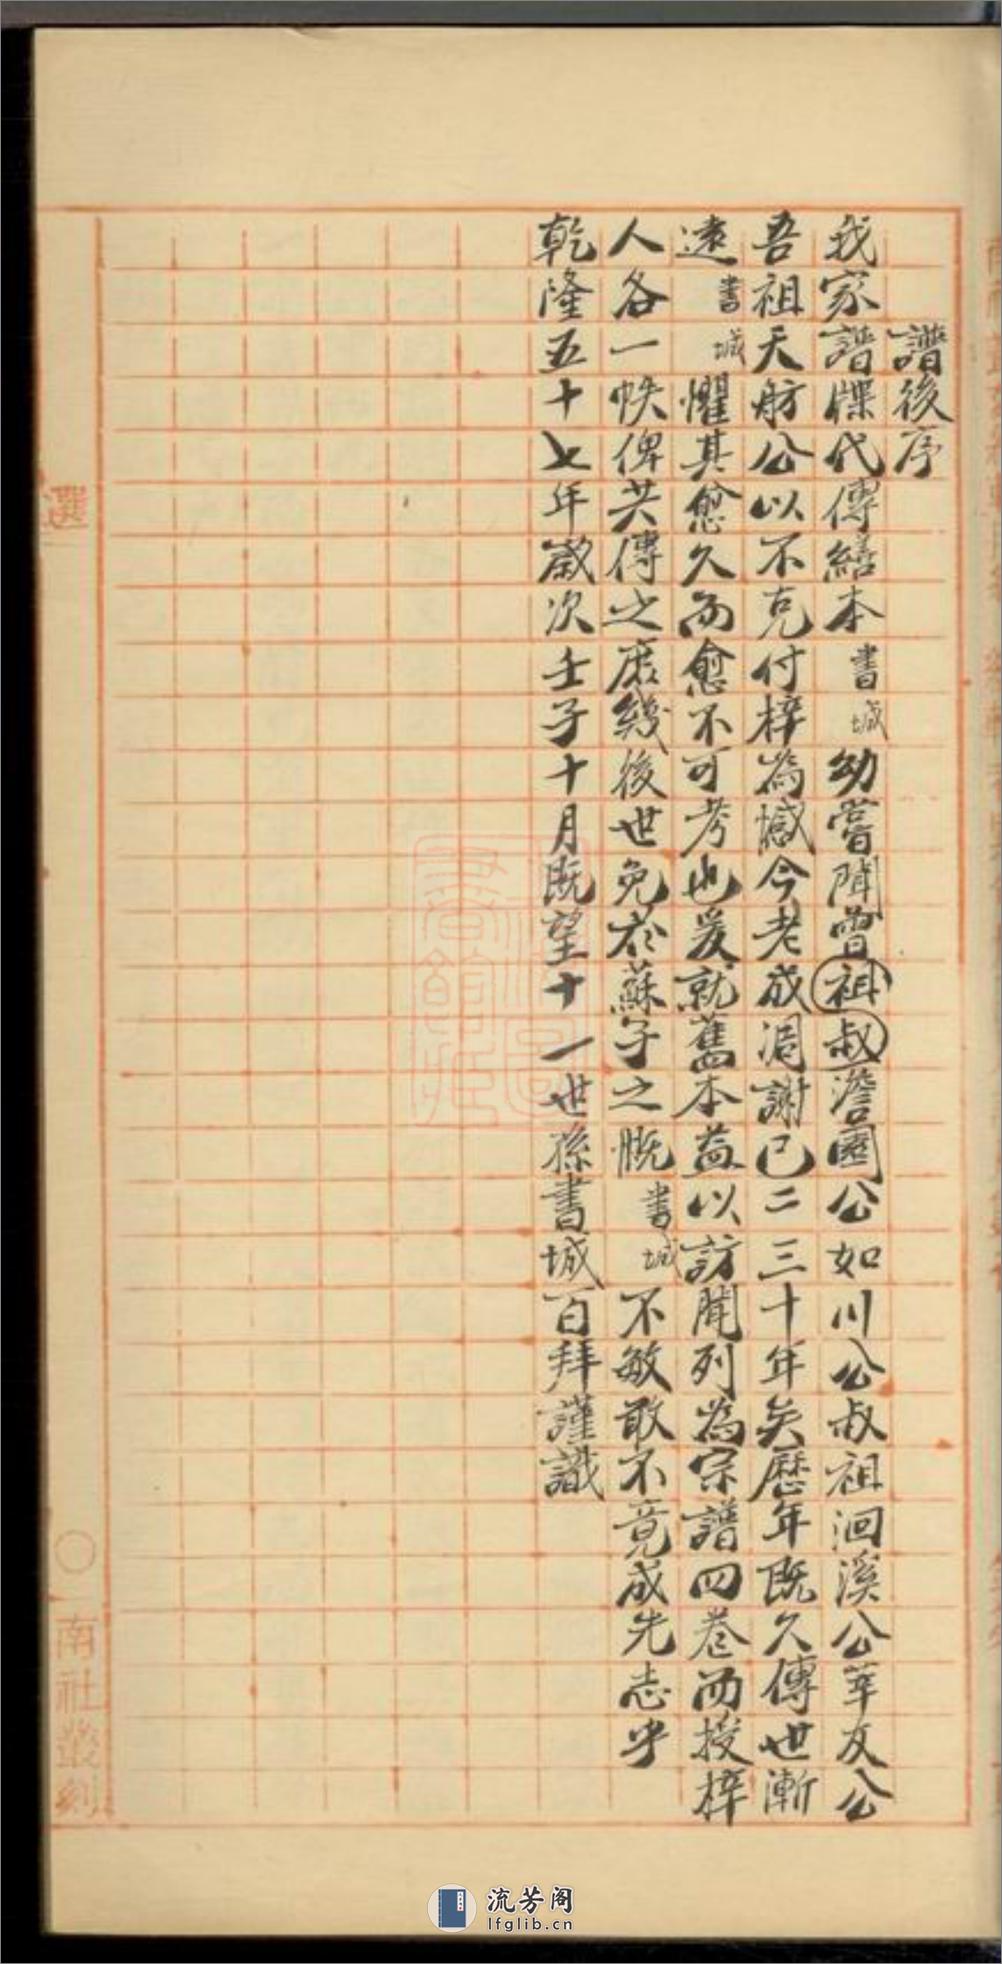 譜後序
我家譜牒代傳繕本書城幼嘗聞曾祖叔澹園公如川公叔祖洄溪公莘友公
吾祖天舫公以不克付梓為憾今老成凋謝已二三十年矣歷年既久傳世漸
遠書城懼其愈久而愈不可考也爰就舊本益以訪聞列為宗譜四卷而授梓
人各一帙俾共傳之庶幾後世免於蘇子之慨書城不敏敢不竟成先志乎
乾隆五十七年歲次壬子十月既望十一世孫書城百拜謹識
選
南社叢刻
流芳阁
lfglib.cn